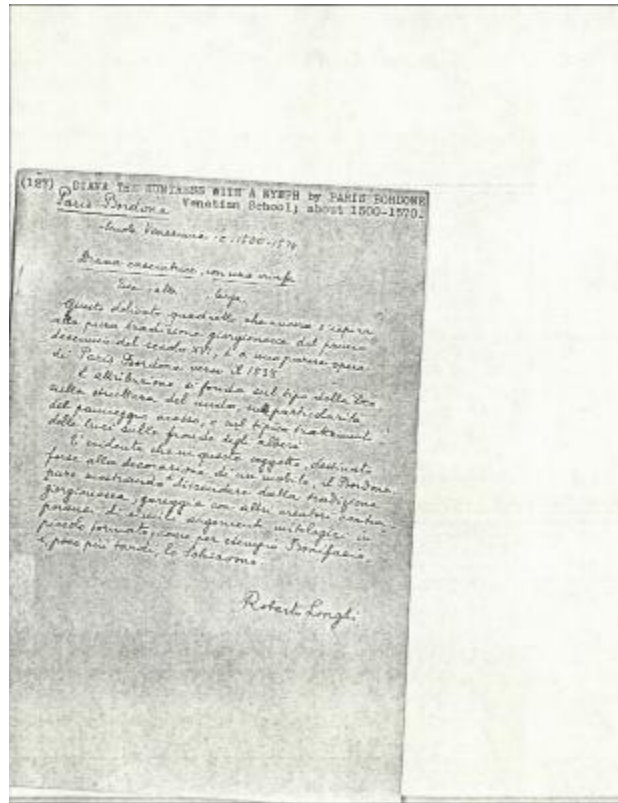 (187) DIANA THE HUNTRESS WITH A NYMPH by PARIS BORDONE
Venetian School; about 1500-1570.
Paris Bordone
Scuola Veneziana c. 1500-1570
Diana cacciatrice, con una ninfa
alta larga
Questo delicato quadretto, che ancora s'ispira
alla pura tradizione giorgionesca del primo
decennio del secolo XVI, è a mio parere opera
di Paris Bordone verso il 1538.
L'attribuzione si fonda sul tipo della Dea
sulla struttura del nudo, sul particolarità
del panneggio, e sul tipico trattamento
delle luci sulle fronde degli alberi
E' evidente che in questo soggetto, destinato
forse alla decorazione di un mobile, il Bordone,
pure mostrando discendere dalla tradizione
giorgionesca, gareggia con altri creatori contem-
poranei di simili argomenti mitologici in
piccolo formato, come per esempio Bonifacio,
e, poco più tardi, lo Schiavone
Roberto Longhi